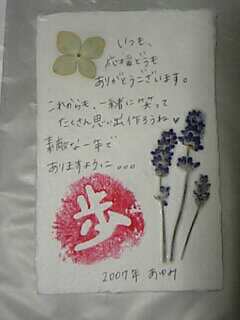 いつも、
応援どうも
ありがとうございます。
これからも、一緒に笑って
たくさん思い出作ろうね♥
素敵な一年で
ありますように。。。
歩
2007年 あゆみ